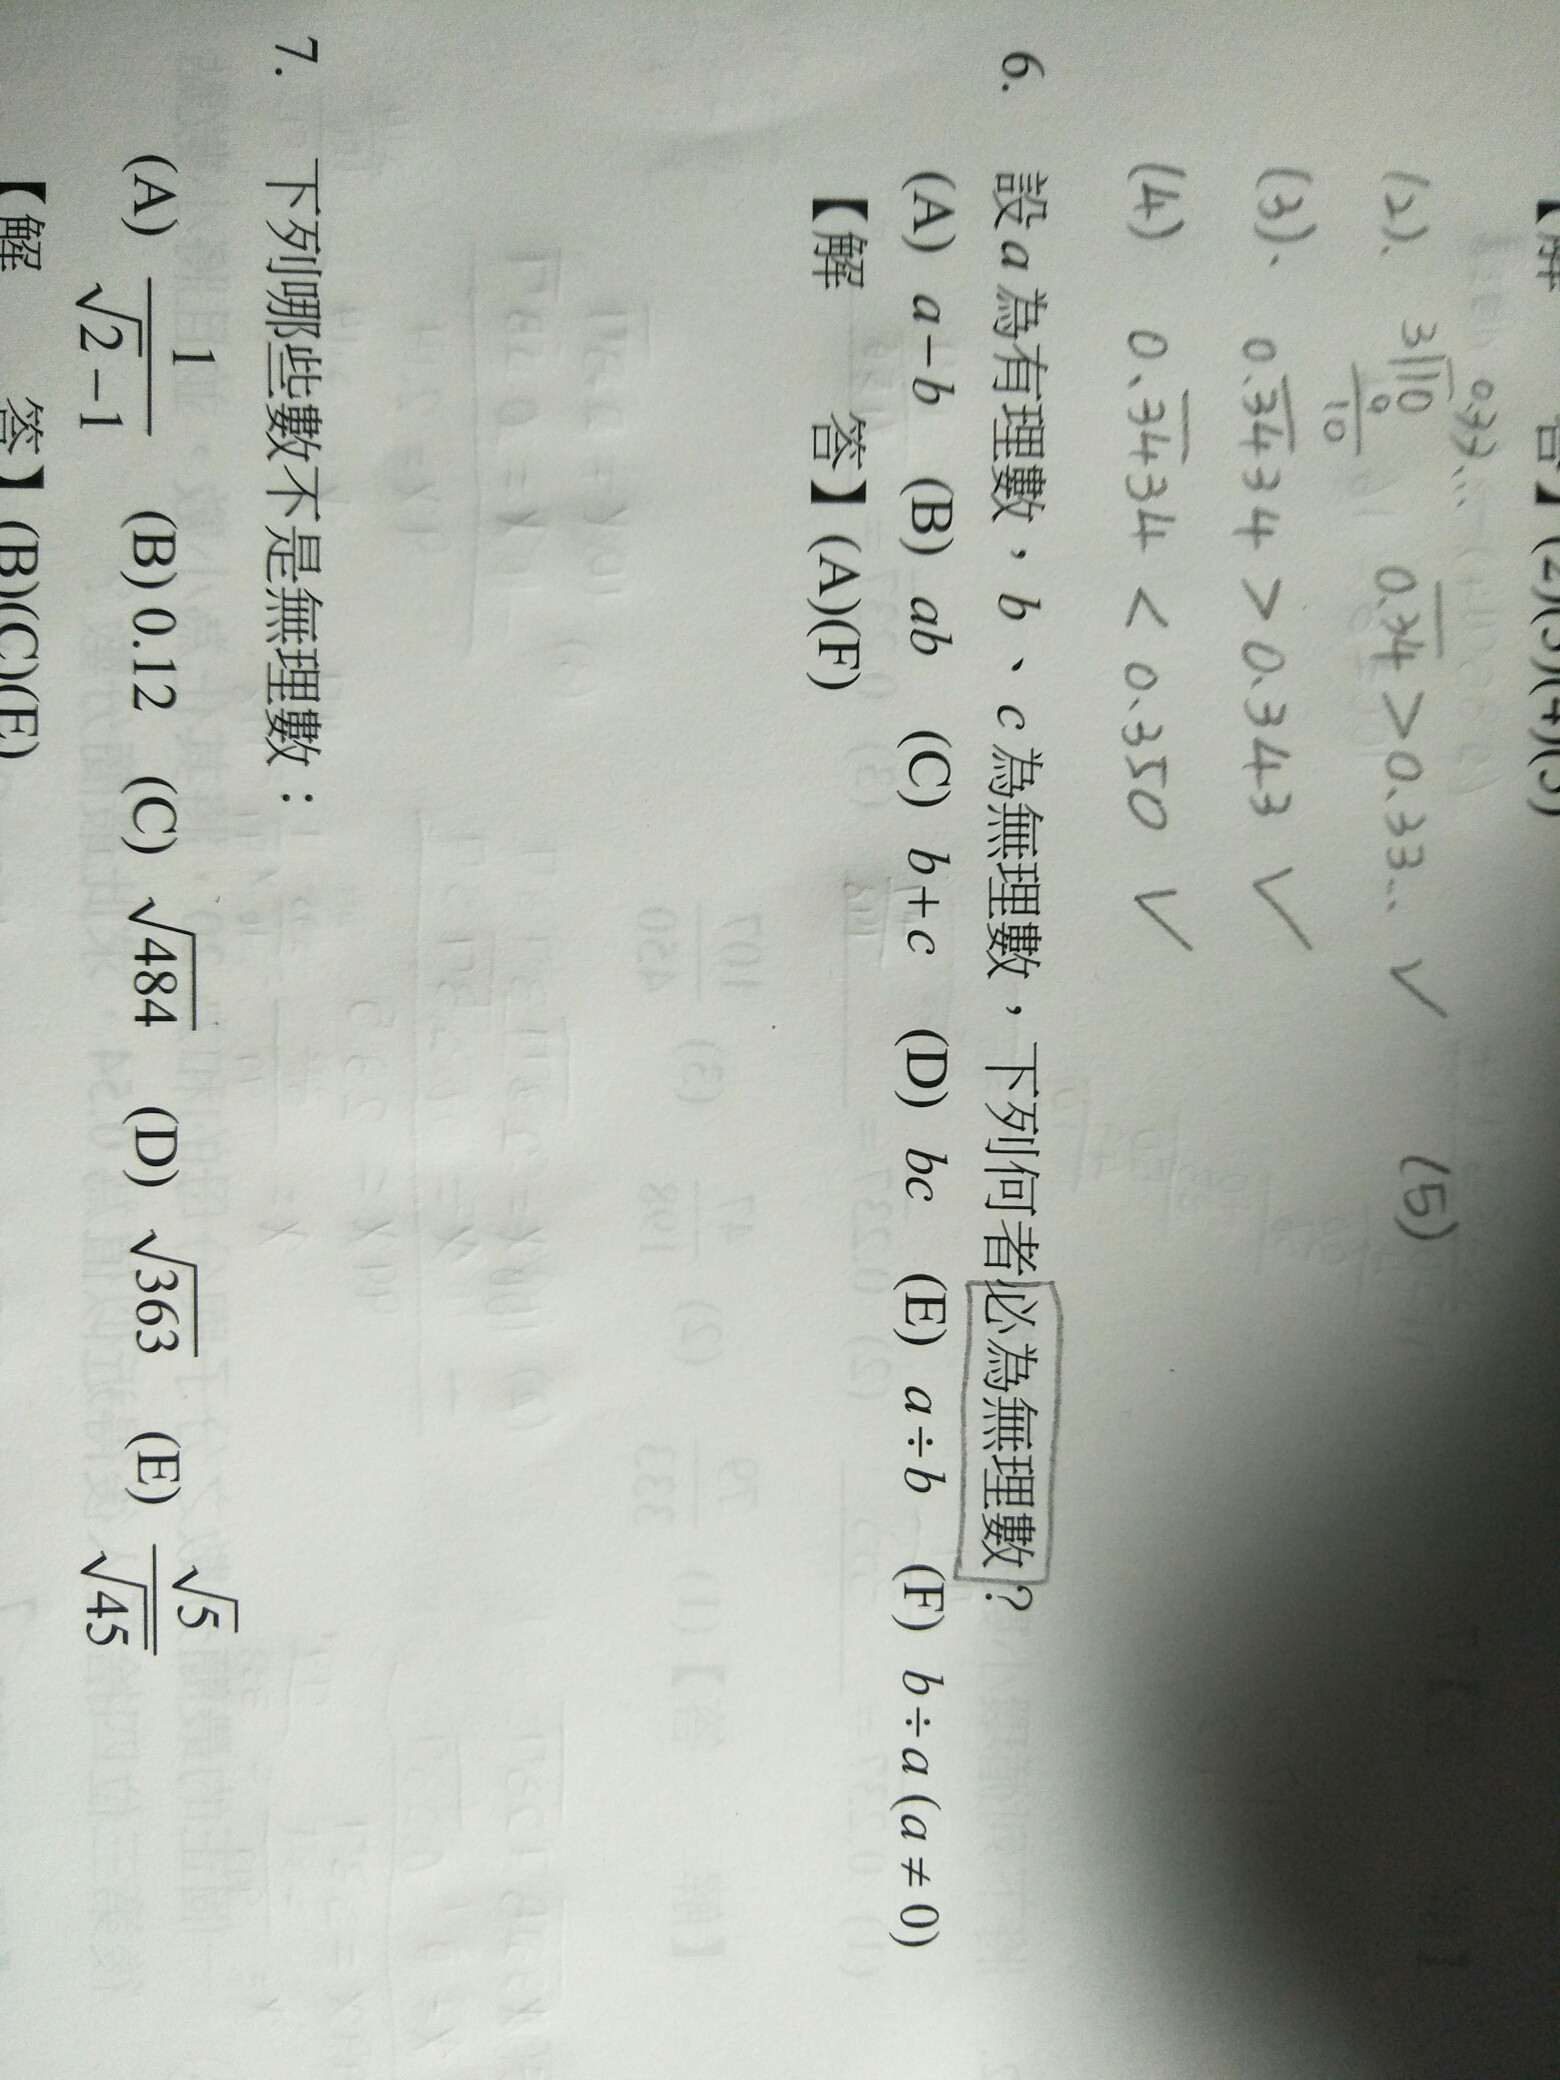 答】(2)(3)(4)(5)
0.33...
(2). 3√10 0.3̅4̅ > 0.33... ✓ (5)
9
10
(3). 0.3̅4̅34 > 0.343 ✓
(4) 0.3̅4̅34 < 0.350 ✓
6. 設a為有理數，b、c為無理數，下列何者必為無理數？
(A) a−b (B) ab (C) b+c (D) bc (E) a÷b (F) b÷a (a≠0)
【解 答】(A)(F)
7. 下列哪些數不是無理數：
(A) 1/(√2−1) (B) 0.12 (C) √484 (D) √363 (E) √5/√45
【解 答】(B)(C)(E)